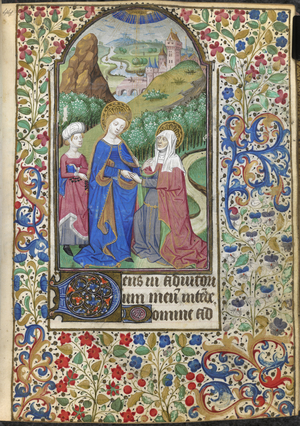 Deus in adiutori
um meum intēde
Domine ad